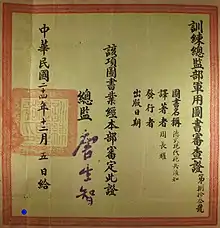 訓練總監部軍用圖書審查證
圖書名稱
譯著者 周長耀
發行者
出版日期
該項圖書業經本部審定此證
總監 唐生智
中華民國二十五年十二月五日給